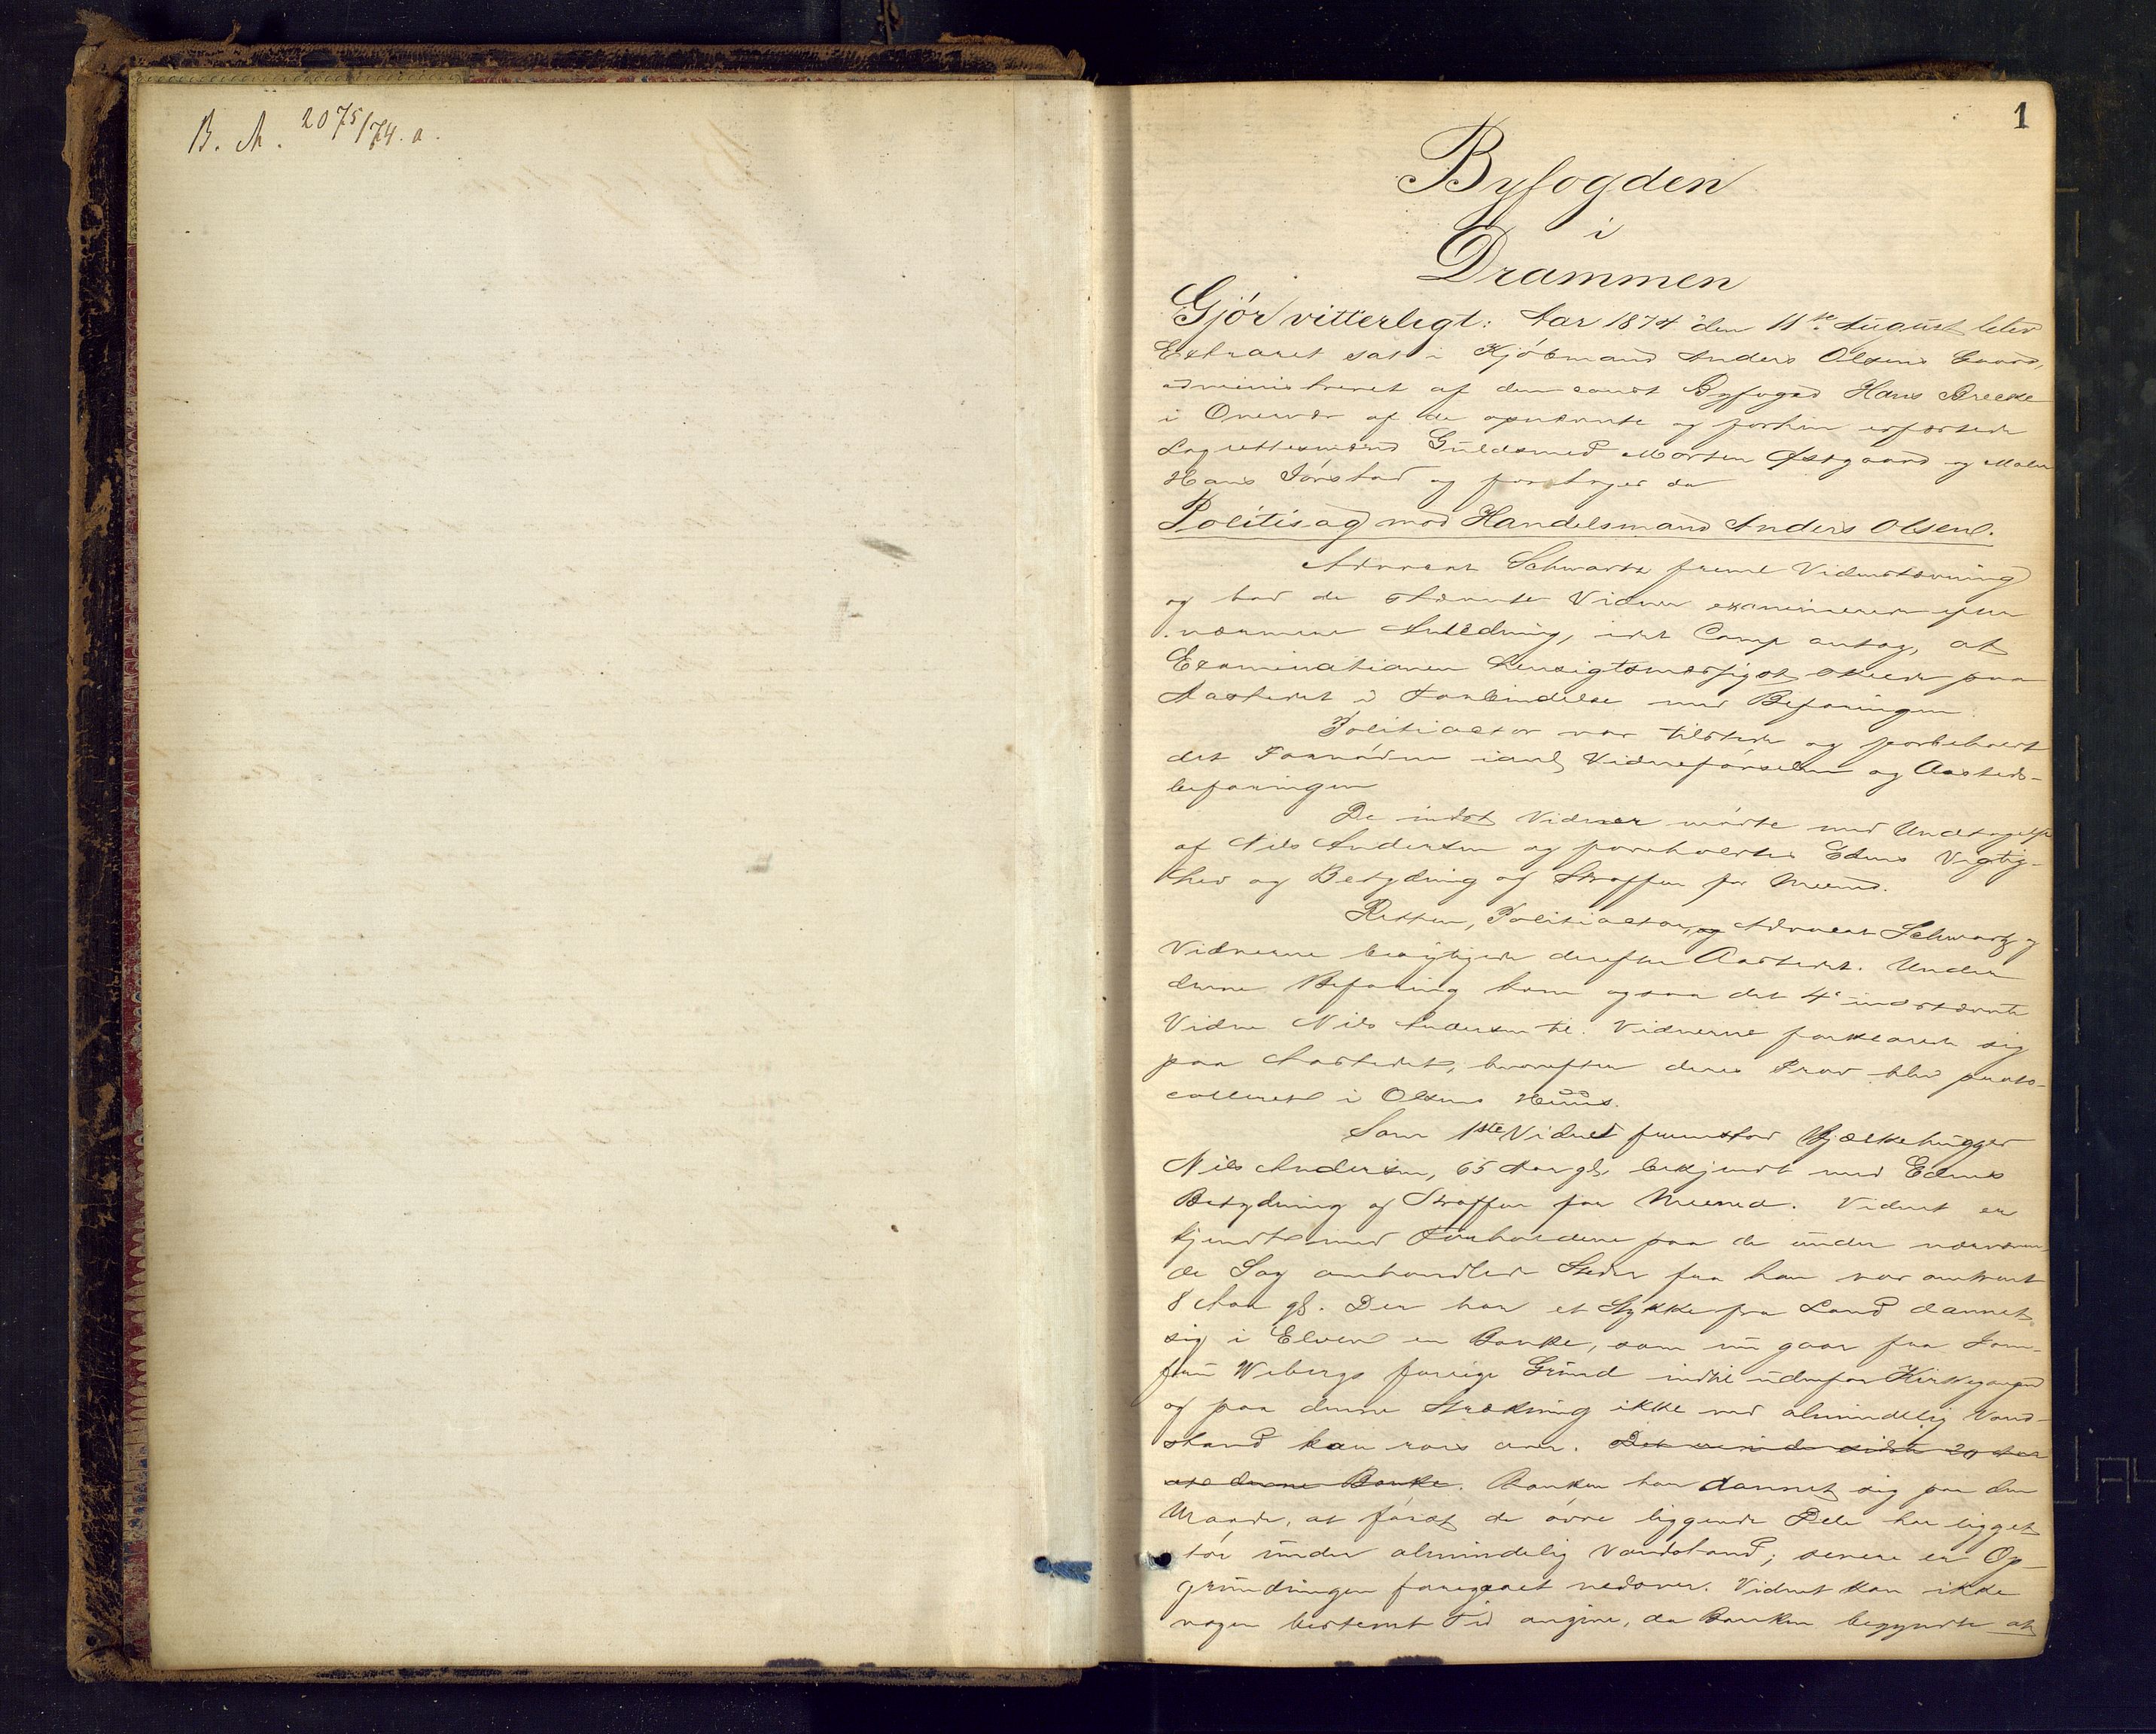 B. A. 2075/74. a.
1
Byfogden
i
Drammen
Gjør vitterligt: Aar 1874 den 11te August blev
Extraret sat i Kjøbmand Anders Olsens Gaard,
administreret af den const Byfoged Hans
i Overvær af de opnævnte og forhen
Lagrettesmænd Guldsmed Morten Østgaard og Maler
Hans Jørstad og foretoges da
Politisag mod Handelsmand Anders Olsen.
Advocat Schwartz freml Vidnestævning
og bad de stævnte Vidner examinerede efter
nærmere Anledning, idet Comp antog, at
Examinationen hensigtsmæssigst skeede paa
Aastedet i Forbindelse med Befaringen.
Politiactor var tilstede og forbeholdt
det Fornødne ianl Vidneførselen og Aasteds-
befaringen
De indst Vidner mødte med Undtagelse
af Nils Andersen og foreholdtes Edens Vigtig-
hed og Betydning og Straffen for Meened.
Retten, Politiactor, og Advocat Schwartz og
Vidnerne besigtigede derefter Aastedet. Under
denne Befaring kom ogsaa det 4de indstævnte
Vidne Nils Andersen til. Vidnerne forklarede sig
paa Aastedet, hvorefter deres Prov blev proto-
colleret i Olsens Huus.
Som 1ste Vidne fremstod Bjælkehugger
Nils Andersen, 65 Aar gl, bekjendt med Edens
Betydning og Straffen for Meened. Vidnet er
kjendt med Forholdene paa de under nærværen-
de Sag omhandlede Steder fra han var omtrent
8 Aar gl. Der har et Stykke fra Land dannet
sig i Elven en Banke, som nu gaar fra Jom-
fru Wibergs forrige Grund indtil udenfor Kirkegaarden
og paa denne Strækning ikke ved almindelig Vand-
stand kan roes over. Det er
at denne Banke. Banken har dannet sig paa den
Maade, at først de øvre liggende Dele har ligget
tør under almindelig Vandstand; senere er Op-
grundningen foregaaet nedover. Vidnet kan ikke
nogen bestemt Tid angive, da Banken begyndte at